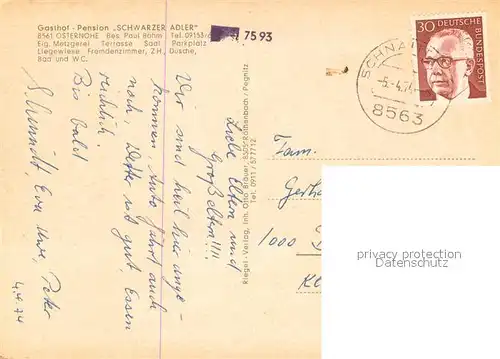 Gasthof - Pension „SCHWARZER ADLER"
8561 OSTERNOHE Bes. Paul Böhm Tel. 09153/ 75 93
Eig. Metzgerei Terrasse Saal Parkplatz
Liegewiese Fremdenzimmer, ZH., Dusche,
Bad und WC.
Liebe Eltern und
Großeltern!!!!
Wir sind heil hier ange-
kommen, Auto fährt auch
noch, Wetter ist gut, Essen
reichlich.
Bis bald
Eure Uwe, Peter
4.4.74
Riegel-Verlag, Inh. Otto Bräuer, 8505 Röthenbach / Pegnitz
Tel. 0911 / 577712
30 DEUTSCHE
BUNDESPOST
SCHNAI
-5.-4.74
8563
Fam.
Gerha
1000
privacy protection
Datenschutz